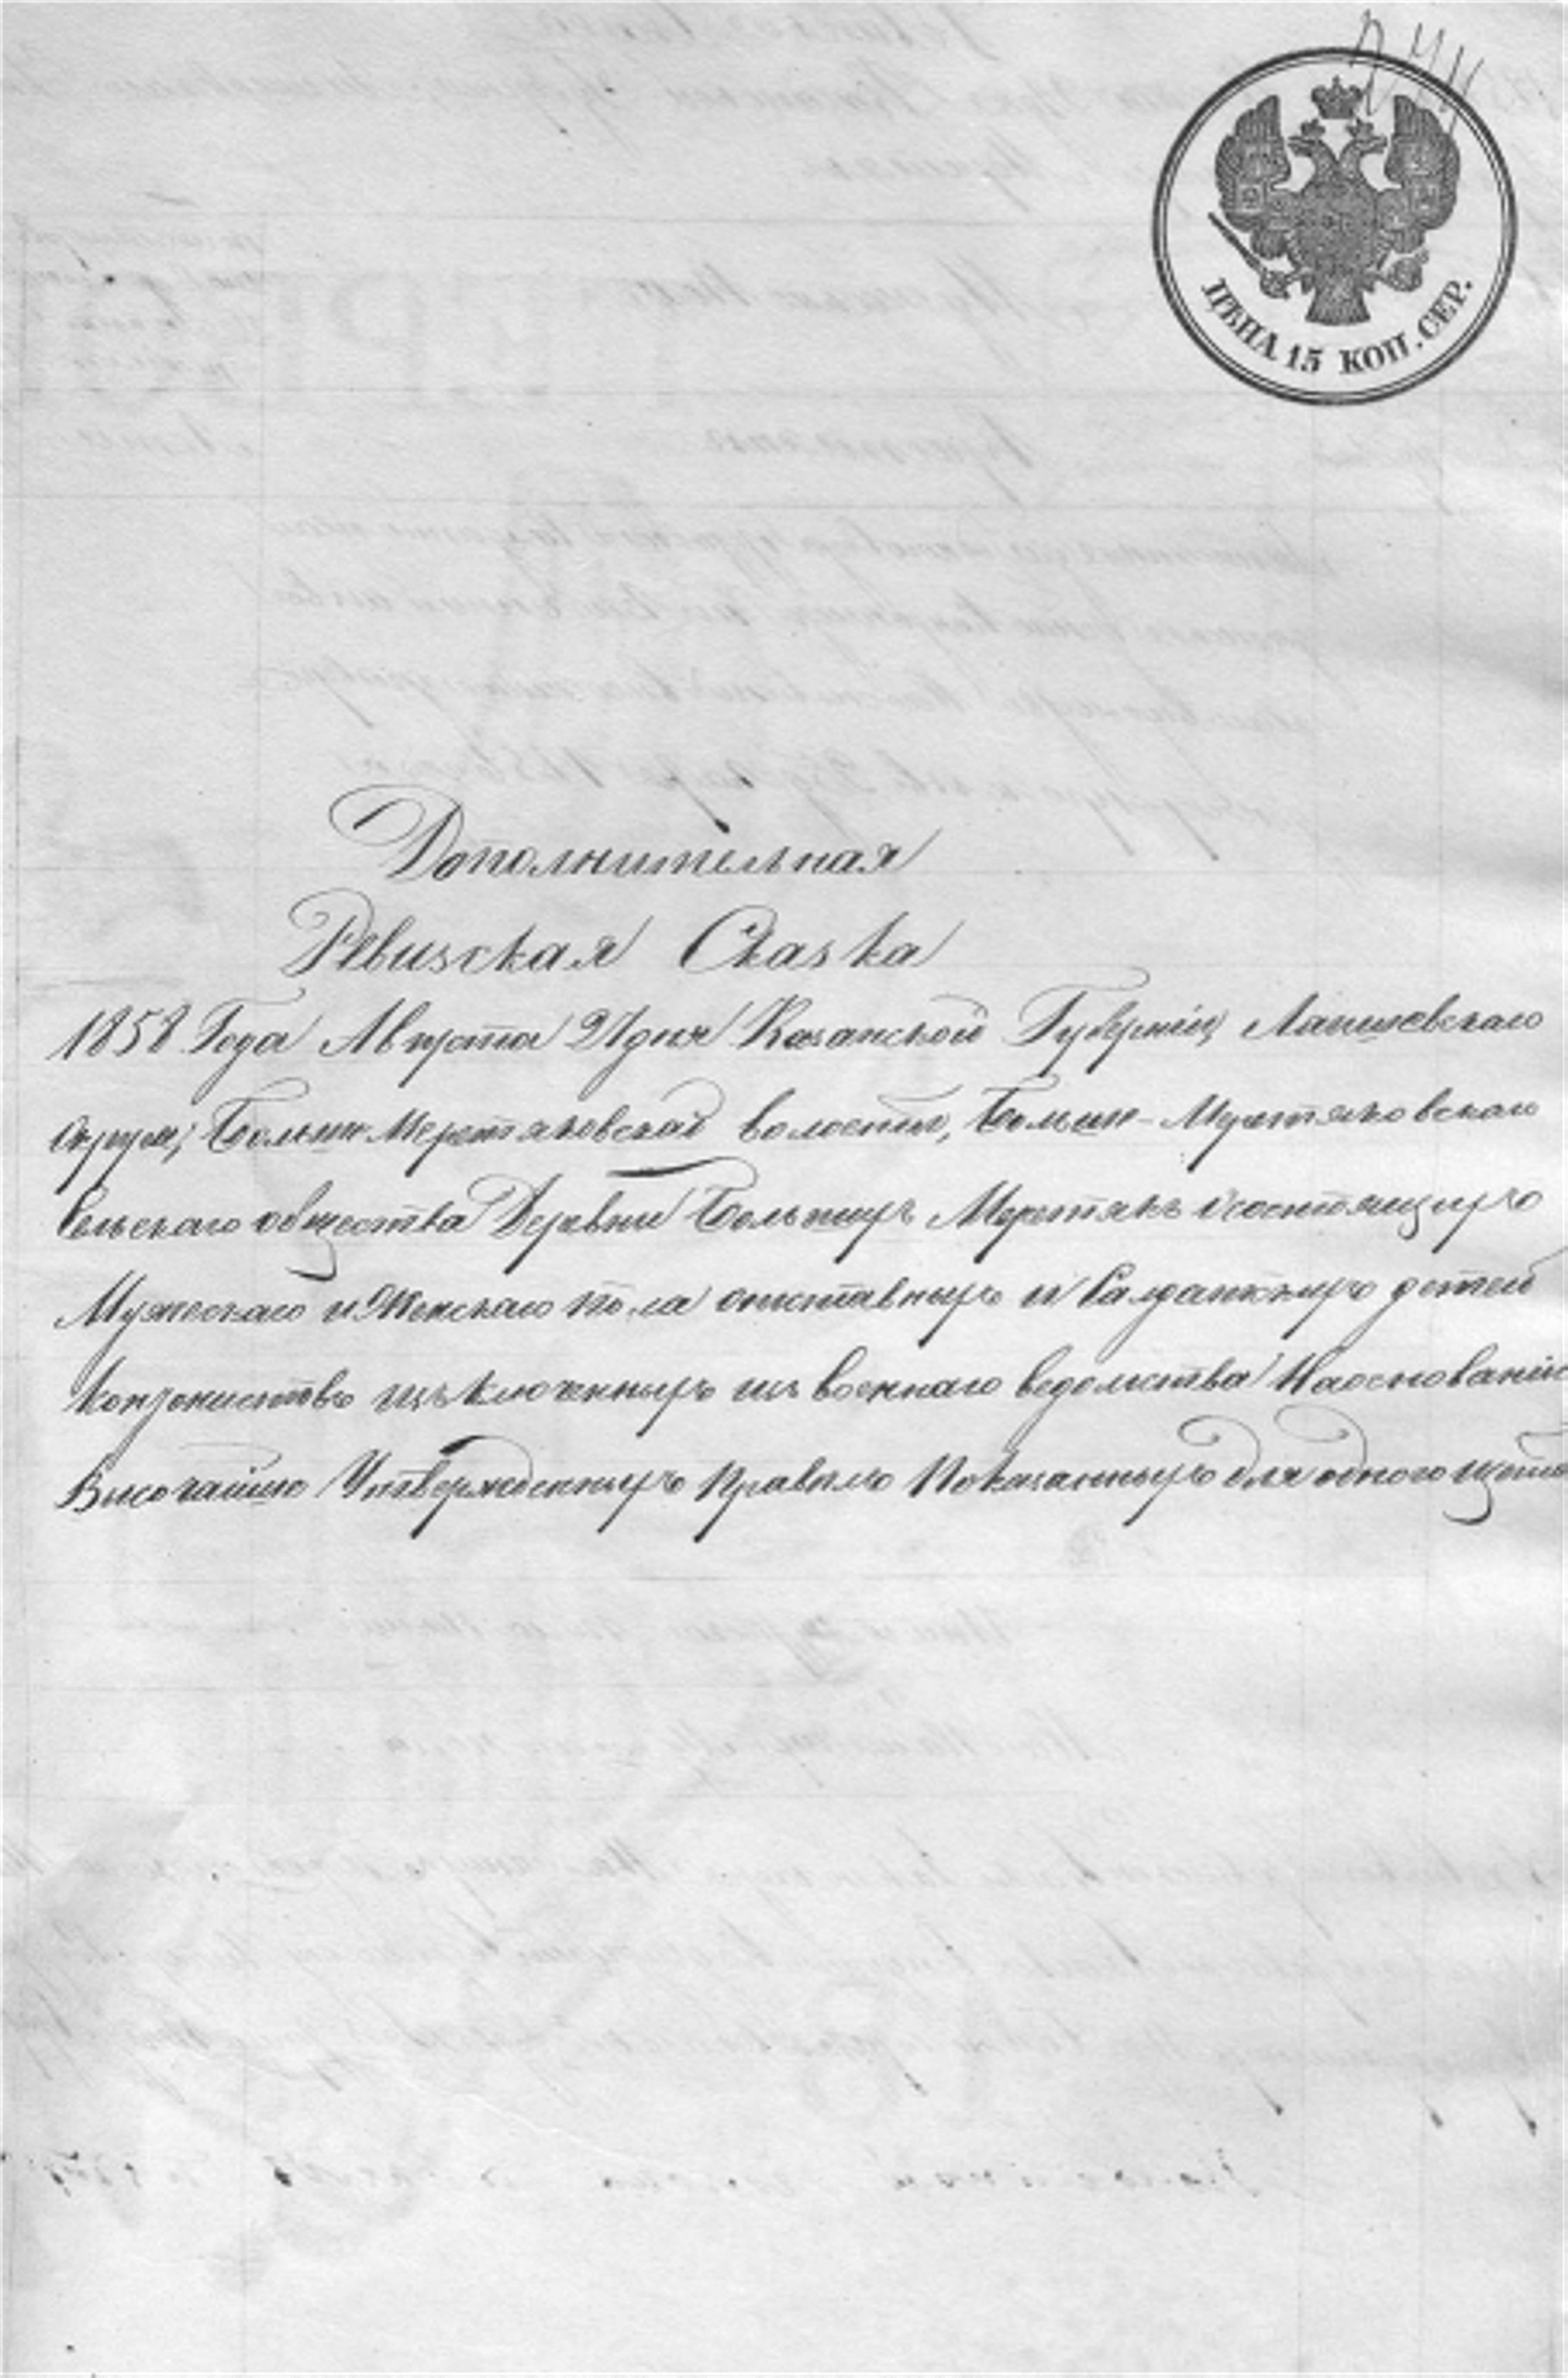 ЦѢНА 15 КОП. СЕР.
Дополнительная
Ревизская Сказка
1858 Года Августа 27 дня Казанской Губерніи, Лаишевскаго
округа, Больше-Меретяковской волости, Больше-Меретяковскаго
Сельскаго общества Деревни Большихъ Меретякъ о состоящихъ
Мужескаго и Женскаго пола отставныхъ и Салдатскихъ детей
Контонистовъ изъключенныхъ изъ военнаго ведомства На основаніи
Высочайше Утвержденныхъ Правилъ Показанныхъ для одного щета